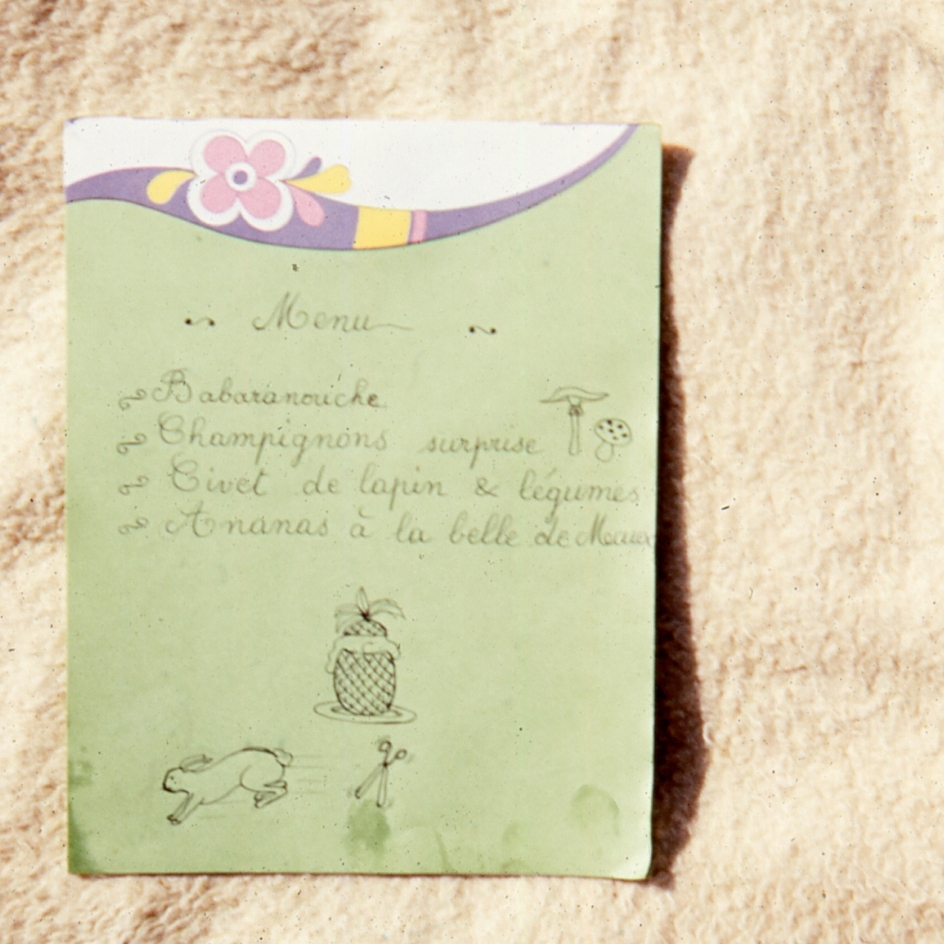 ~ Menu ~
Babaranouche
Champignons surprise
Civet de lapin & légumes
Ananas à la belle de Meaux